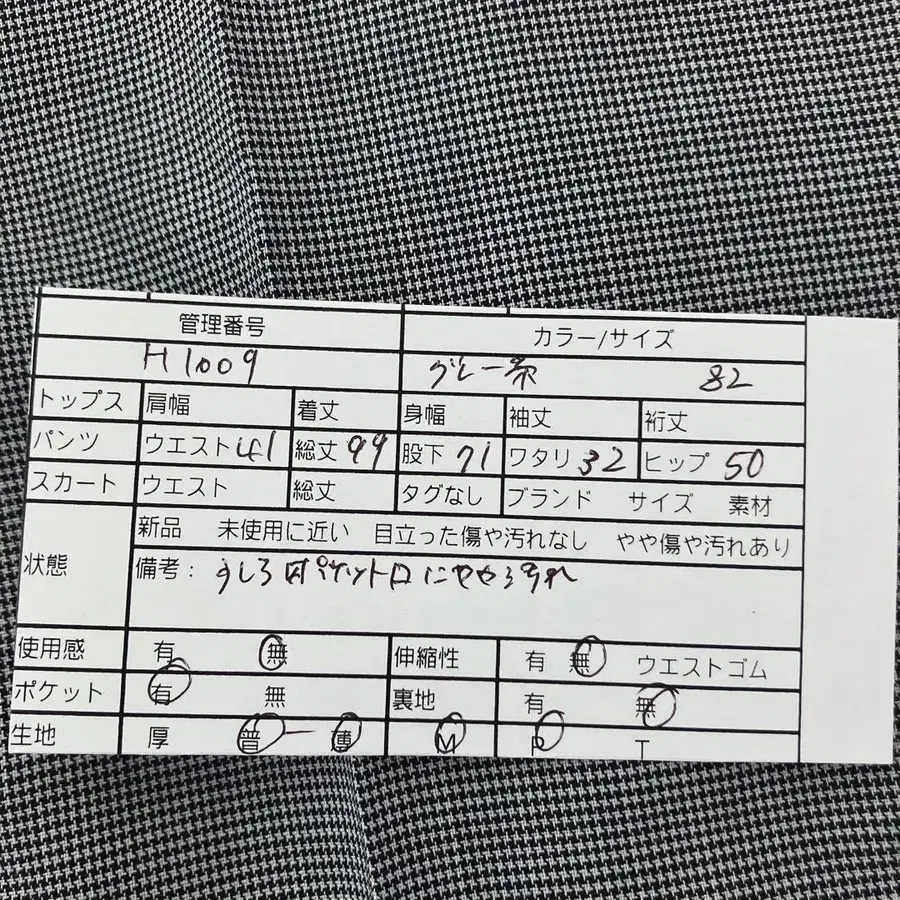 管理番号 カラー/サイズ
H1009 グレー系 82
トップス 肩幅 着丈 身幅 袖丈 裄丈
パンツ ウエスト41 総丈99 股下71 ワタリ32 ヒップ50
スカート ウエスト 総丈 タグなし ブランド サイズ 素材
状態 新品 未使用に近い 目立った傷や汚れなし やや傷や汚れあり
備考: うしろ ポケット口にやや
使用感 有 無 伸縮性 有 無 ウエストゴム
ポケット 有 無 裏地 有 無
生地 厚 普 ー 薄 M P T